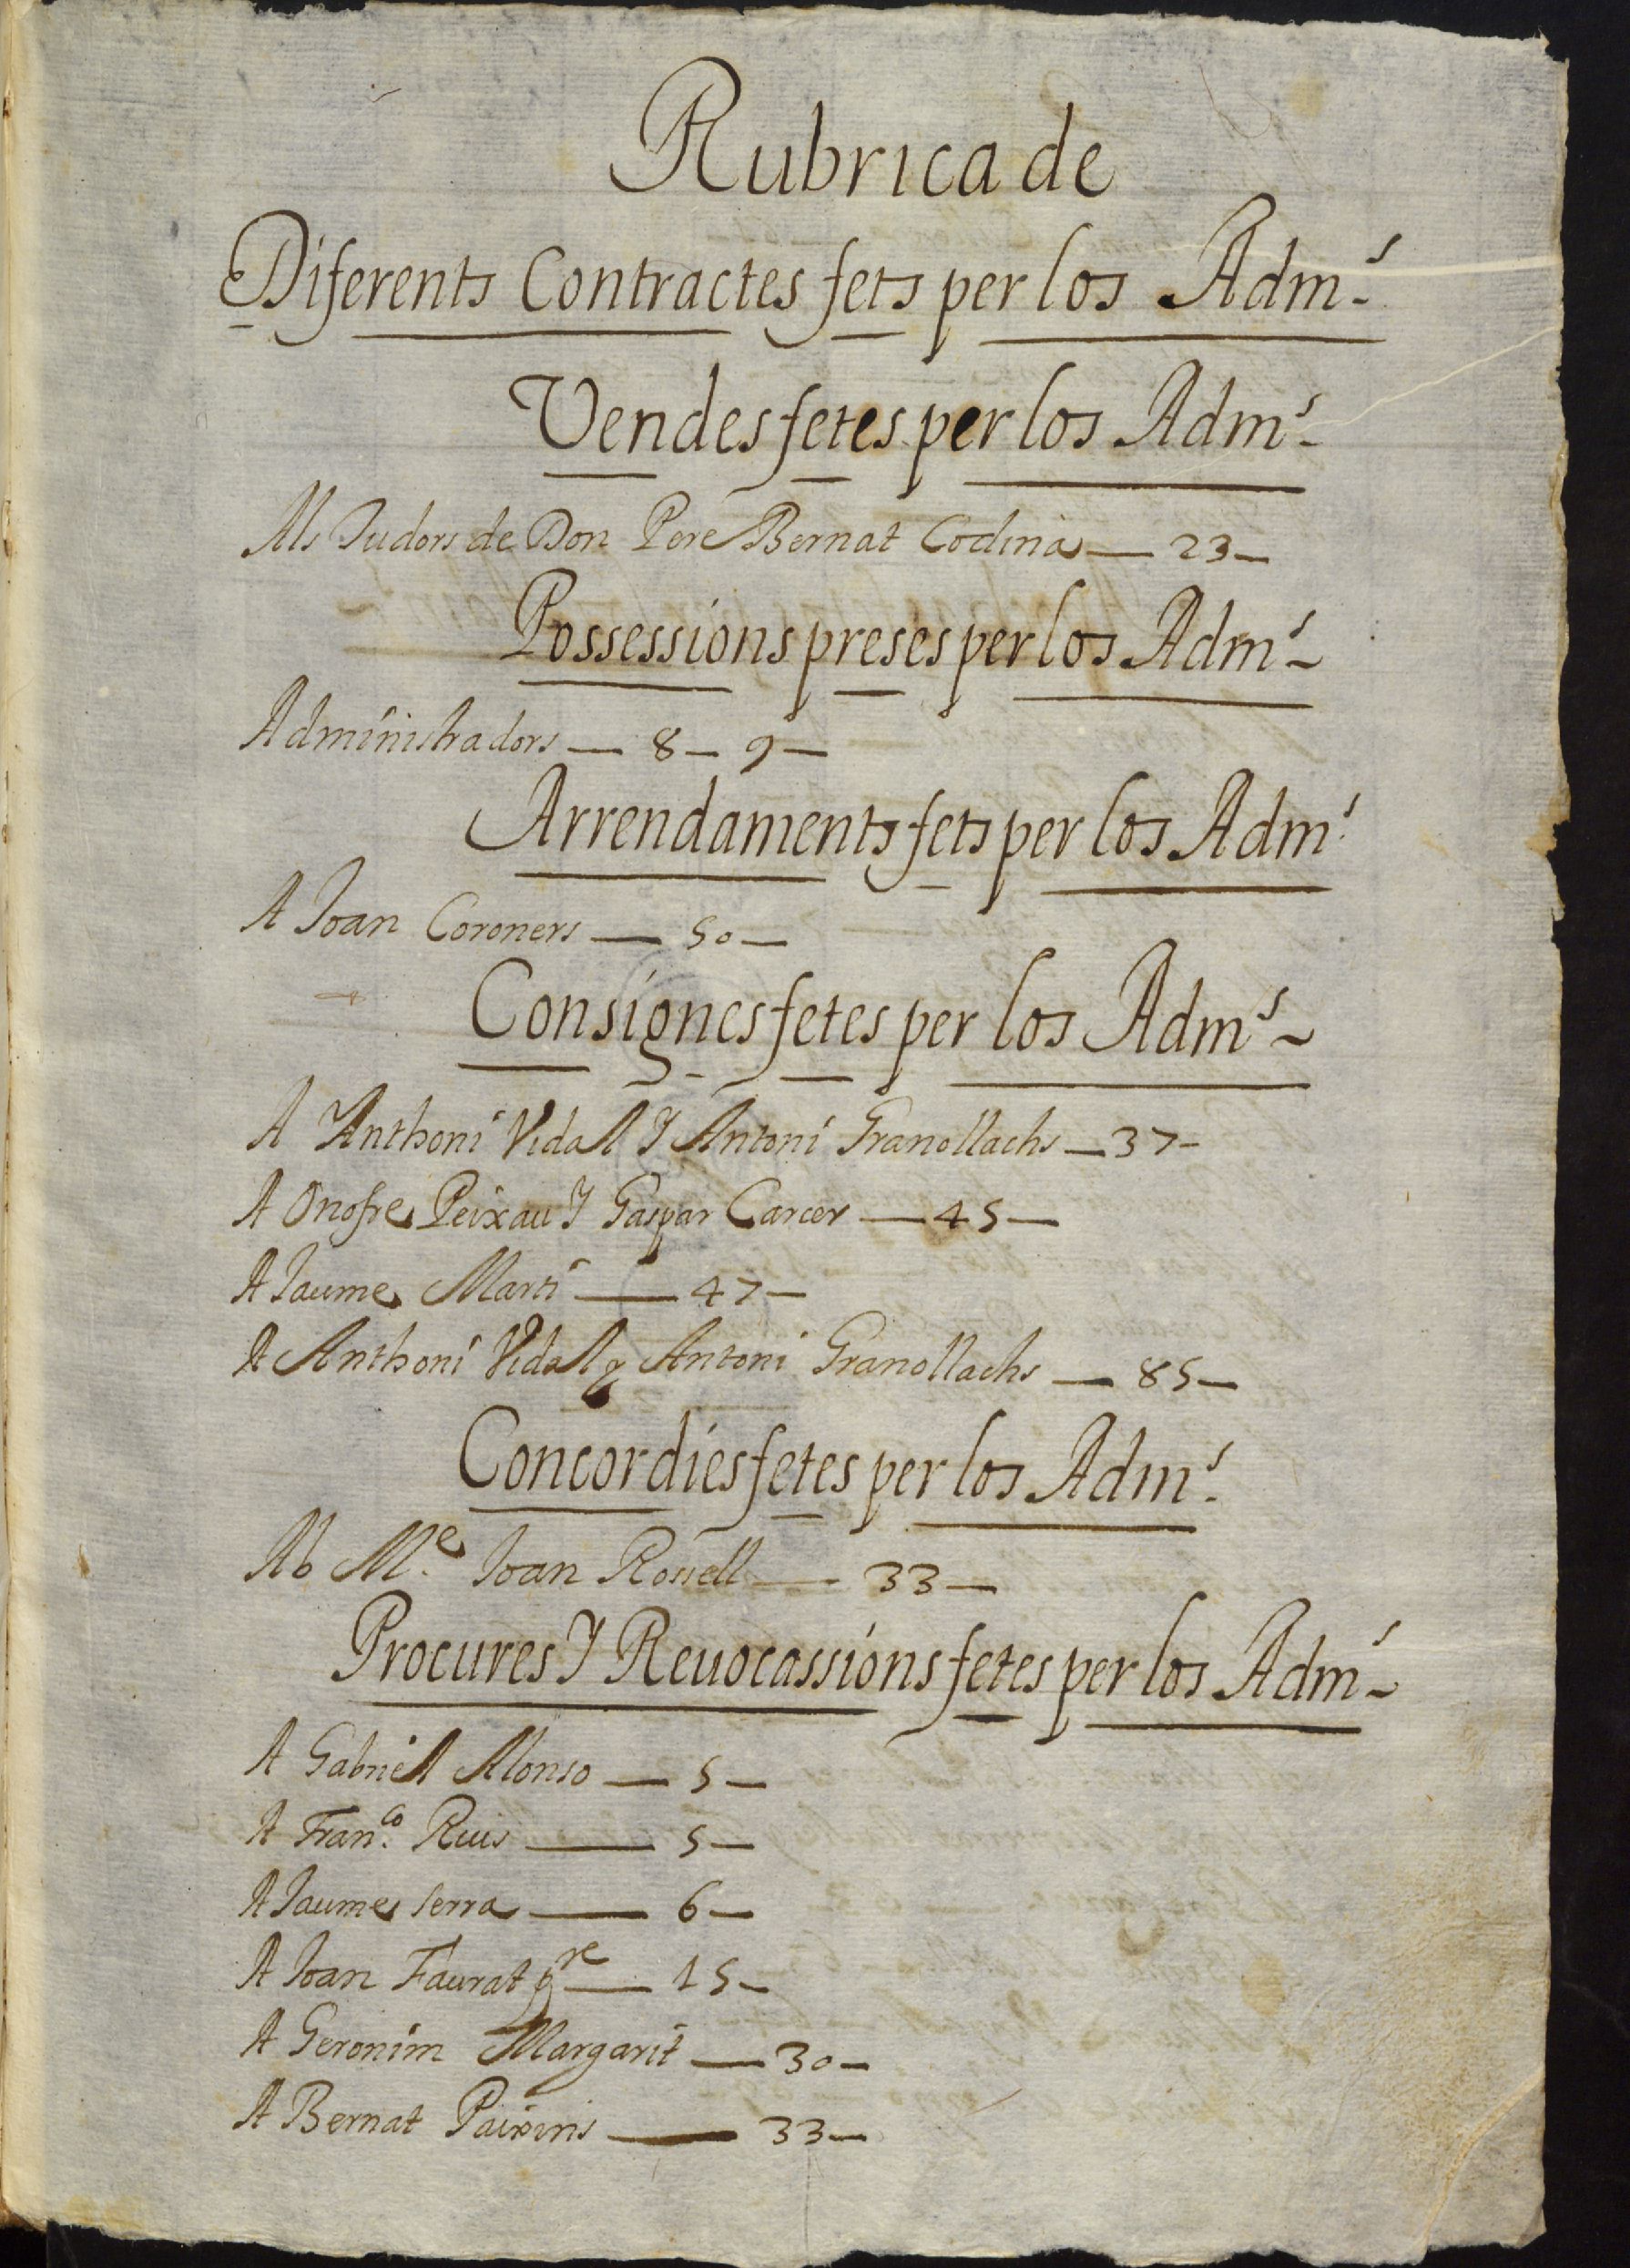 Rubrica de
Diferents Contractes fets per los Adm.s
Vendes fetes per los Adm.s
Als Tudors de Don Pere Bernat Codina — 23 —
Possessions preses per los Adm.s
Administradors — 8 — 9 —
Arrendaments fets per los Adm.s
A Joan Coroners — 50 —
Consignes fetes per los Adm.s
A Anthoni Vidal Y Antoni Granollachs — 37 —
A Onofre Peixau Y Gaspar Carcer — 45 —
A Jaume Marti — 47 —
A Anthoni Vidal y Antoni Granollachs — 85 —
Concordies fetes per los Adm.s
Ab M.e Joan Rossell — 33 —
Procures Y Reuocassions fetes per los Adm.s
A Gabriel Alonso — 5 —
A Fran.co Ruis — 5 —
A Jaume Serra — 6 —
A Joan Faurat p.re — 15 —
A Geronim Margarit — 30 —
A Bernat — 33 —